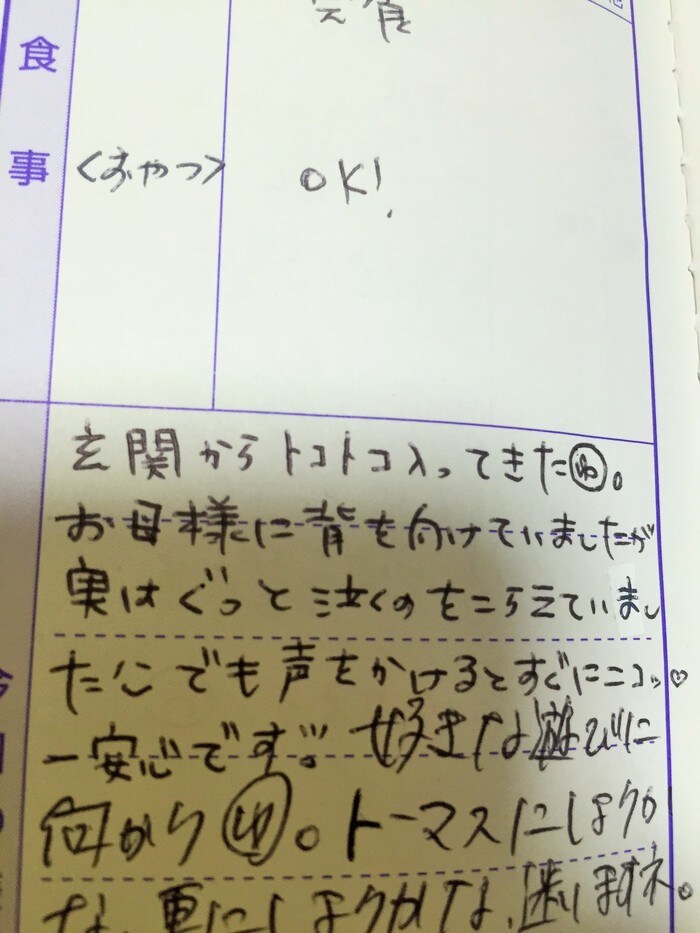 完食
食事
<おやつ>
OK!
玄関からトコトコ入ってきたゆ。
お母様に背を向けていましたが
実はぐっと泣くのをこらえていまし
た。でも声をかけるとすぐにニコッ♡
一安心です。好きな遊びに
向かうゆ。トーマスにしようか
な、車にしようかな、迷いますネ。